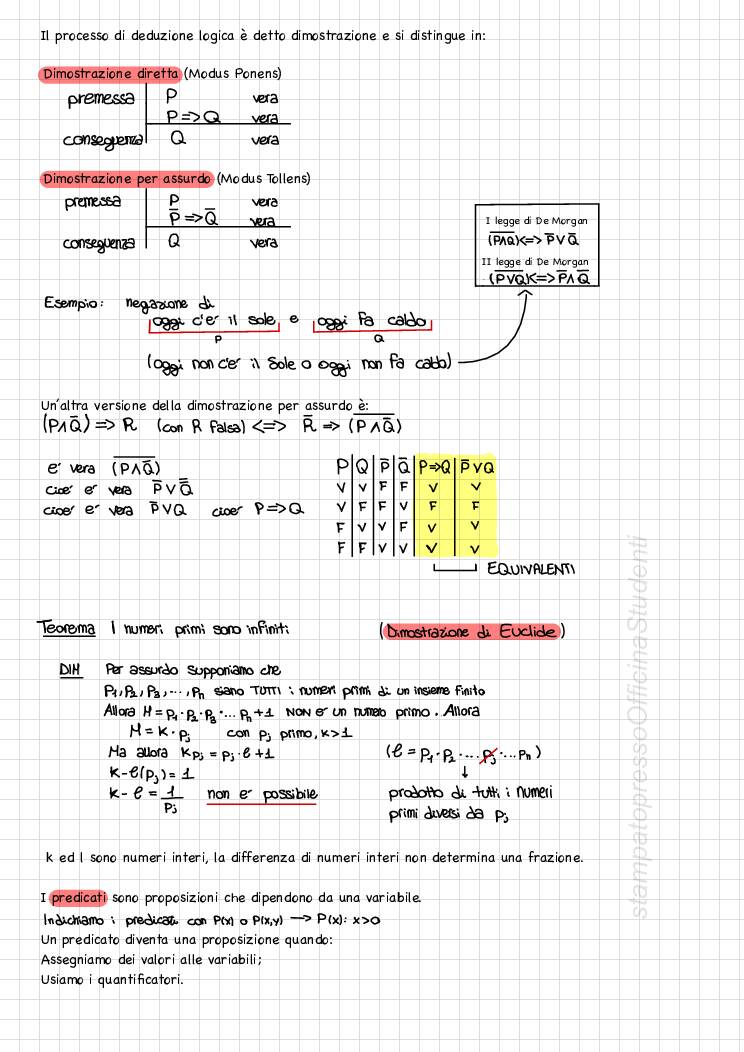 Il processo di deduzione logica è detto dimostrazione e si distingue in:
Dimostrazione diretta (Modus Ponens)
premessa P vera
P => Q vera
conseguenza Q vera
Dimostrazione per assurdo (Modus Tollens)
premessa P vera
P̅ => Q̅ vera
conseguenza Q vera
I legge di De Morgan
(P∧Q)̅ <=> P̅ ∨ Q̅
II legge di De Morgan
(P∨Q)̅ <=> P̅ ∧ Q̅
Esempio: negazione di
oggi c'è il sole e oggi fa caldo
P Q
(oggi non c'è il Sole o oggi non fa caldo)
Un'altra versione della dimostrazione per assurdo è:
(P∧Q̅) => R (con R falsa) <=> R̅ => (P∧Q̅)̅
è vera (P∧Q̅)̅
cioè è vera P̅ ∨ Q̿
cioè è vera P̅ ∨ Q cioè P => Q
P Q P̅ Q̅ P=>Q P̅∨Q
V V F F V V
V F F V F F
F V V F V V
F F V V V V
EQUIVALENTI
Teorema I numeri primi sono infiniti (Dimostrazione di Euclide)
DIM Per assurdo supponiamo che
P₁, P₂, P₃, ..., Pₙ siano TUTTI i numeri primi di un insieme finito
Allora M = P₁ · P₂ · P₃ · ... Pₙ + 1 NON è un numero primo. Allora
M = K · Pⱼ con Pⱼ primo, K > 1
Ma allora K Pⱼ = Pⱼ · ℓ + 1 (ℓ = P₁ · P₂ · ... Pⱼ · ... Pₙ)
K - ℓ(Pⱼ) = 1
K - ℓ = 1/Pⱼ non è possibile
prodotto di tutti i numeri
primi diversi da Pⱼ
K ed l sono numeri interi, la differenza di numeri interi non determina una frazione.
I predicati sono proposizioni che dipendono da una variabile.
Indichiamo i predicati con P(x) o P(x,y) → P(x): x>0
Un predicato diventa una proposizione quando:
Assegniamo dei valori alle variabili;
Usiamo i quantificatori.
stampatopressoOfficinaStudenti